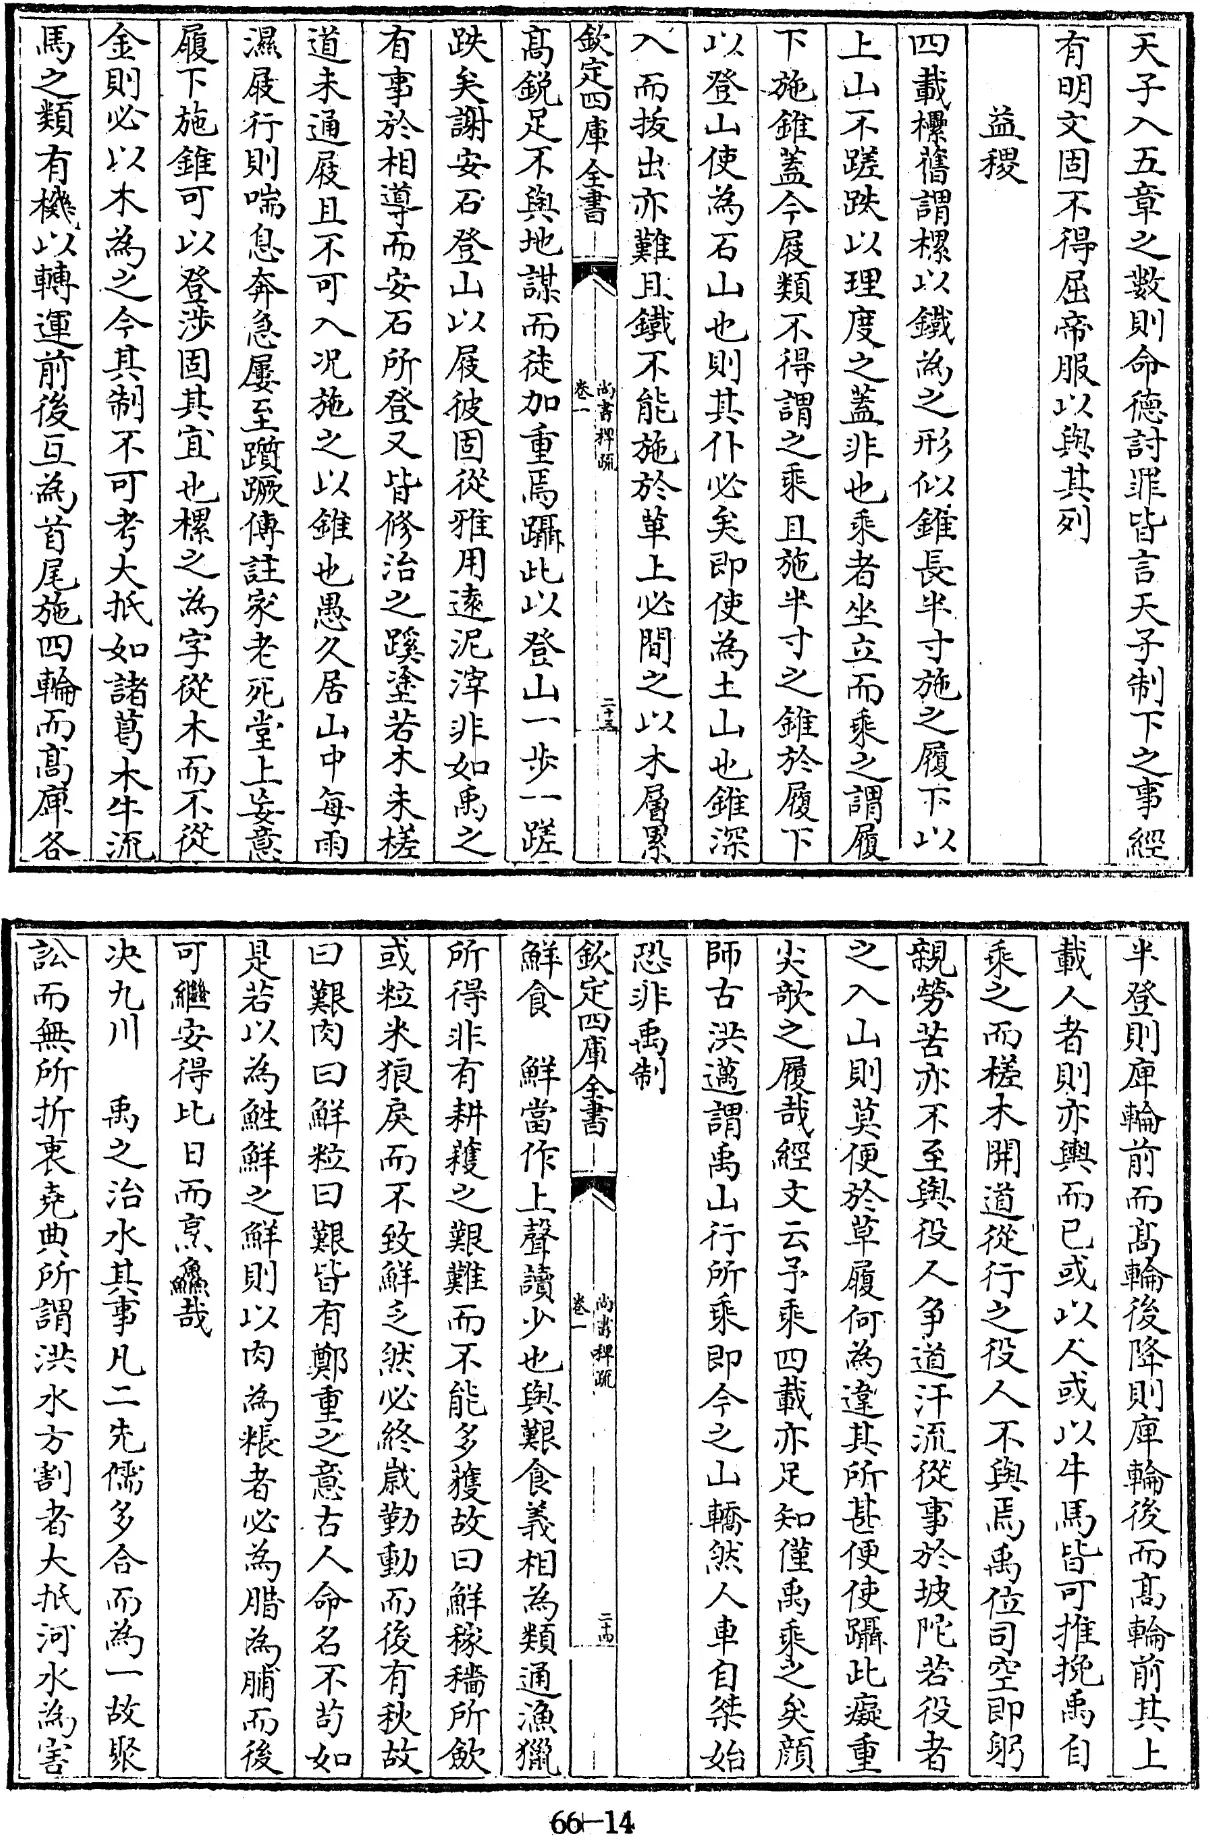 天子入五章之數則命德討罪皆言天子制下之事經
有明文固不得屈帝服以與其列
益稷
四載樏舊謂樏以鐵為之形似錐長半寸施之履下以
上山不蹉跌以理度之蓋非也乘者坐立而乘之謂履
下施錐蓋今屐類不得謂之乘且施半寸之錐於履下
以登山使為石山也則其仆必矣即使為土山也錐深
入而拔出亦難且鐵不能施於革上必間之以木層累
欽定四庫全書
尚書稗疏
卷一
二十三
高銳足不與地謀而徒加重焉躡此以登山一步一蹉
跌矣謝安石登山以屐彼固從雅用遠泥滓非如禹之
有事於相導而安石所登又皆修治之蹊塗若木未槎
道未通屐且不可入况施之以錐也愚久居山中每雨
濕屐行則喘息奔急屢至躓蹶傳註家老死堂上妄意
履下施錐可以登涉固其宜也樏之為字從木而不從
金則必以木為之今其制不可考大抵如諸葛木牛流
馬之類有機以轉運前後互為首尾施四輪而高庳各
半登則庳輪前而高輪後降則庳輪後而高輪前其上
載人者則亦輿而已或以人或以牛馬皆可推挽禹自
乘之而槎木開道從行之役人不與焉禹位司空即躬
親勞苦亦不至與役人争道汗流從事於坡陀若役者
之入山則莫便於草履何為違其所甚便使躡此癡重
尖欹之履哉經文云予乘四載亦足知僅禹乘之矣顔
師古洪邁謂禹山行所乘即今之山轎然人車自桀始
恐非禹制
欽定四庫全書
尚書稗疏
卷一
二十四
鮮食　鮮當作上聲讀少也與艱食義相為類通漁獵
所得非有耕穫之艱難而不能多獲故曰鮮稼穡所斂
或粒米狼戾而不致鮮乏然必終歲勤動而後有秋故
曰艱肉曰鮮粒曰艱皆有鄭重之意古人命名不苟如
是若以為鮏鮮之鮮則以肉為粻者必為腊為脯而後
可繼安得比日而烹鱻哉
决九川　禹之治水其事凡二先儒多合而為一故聚
訟而無所折衷堯典所謂洪水方割者大抵河水為害
66-14